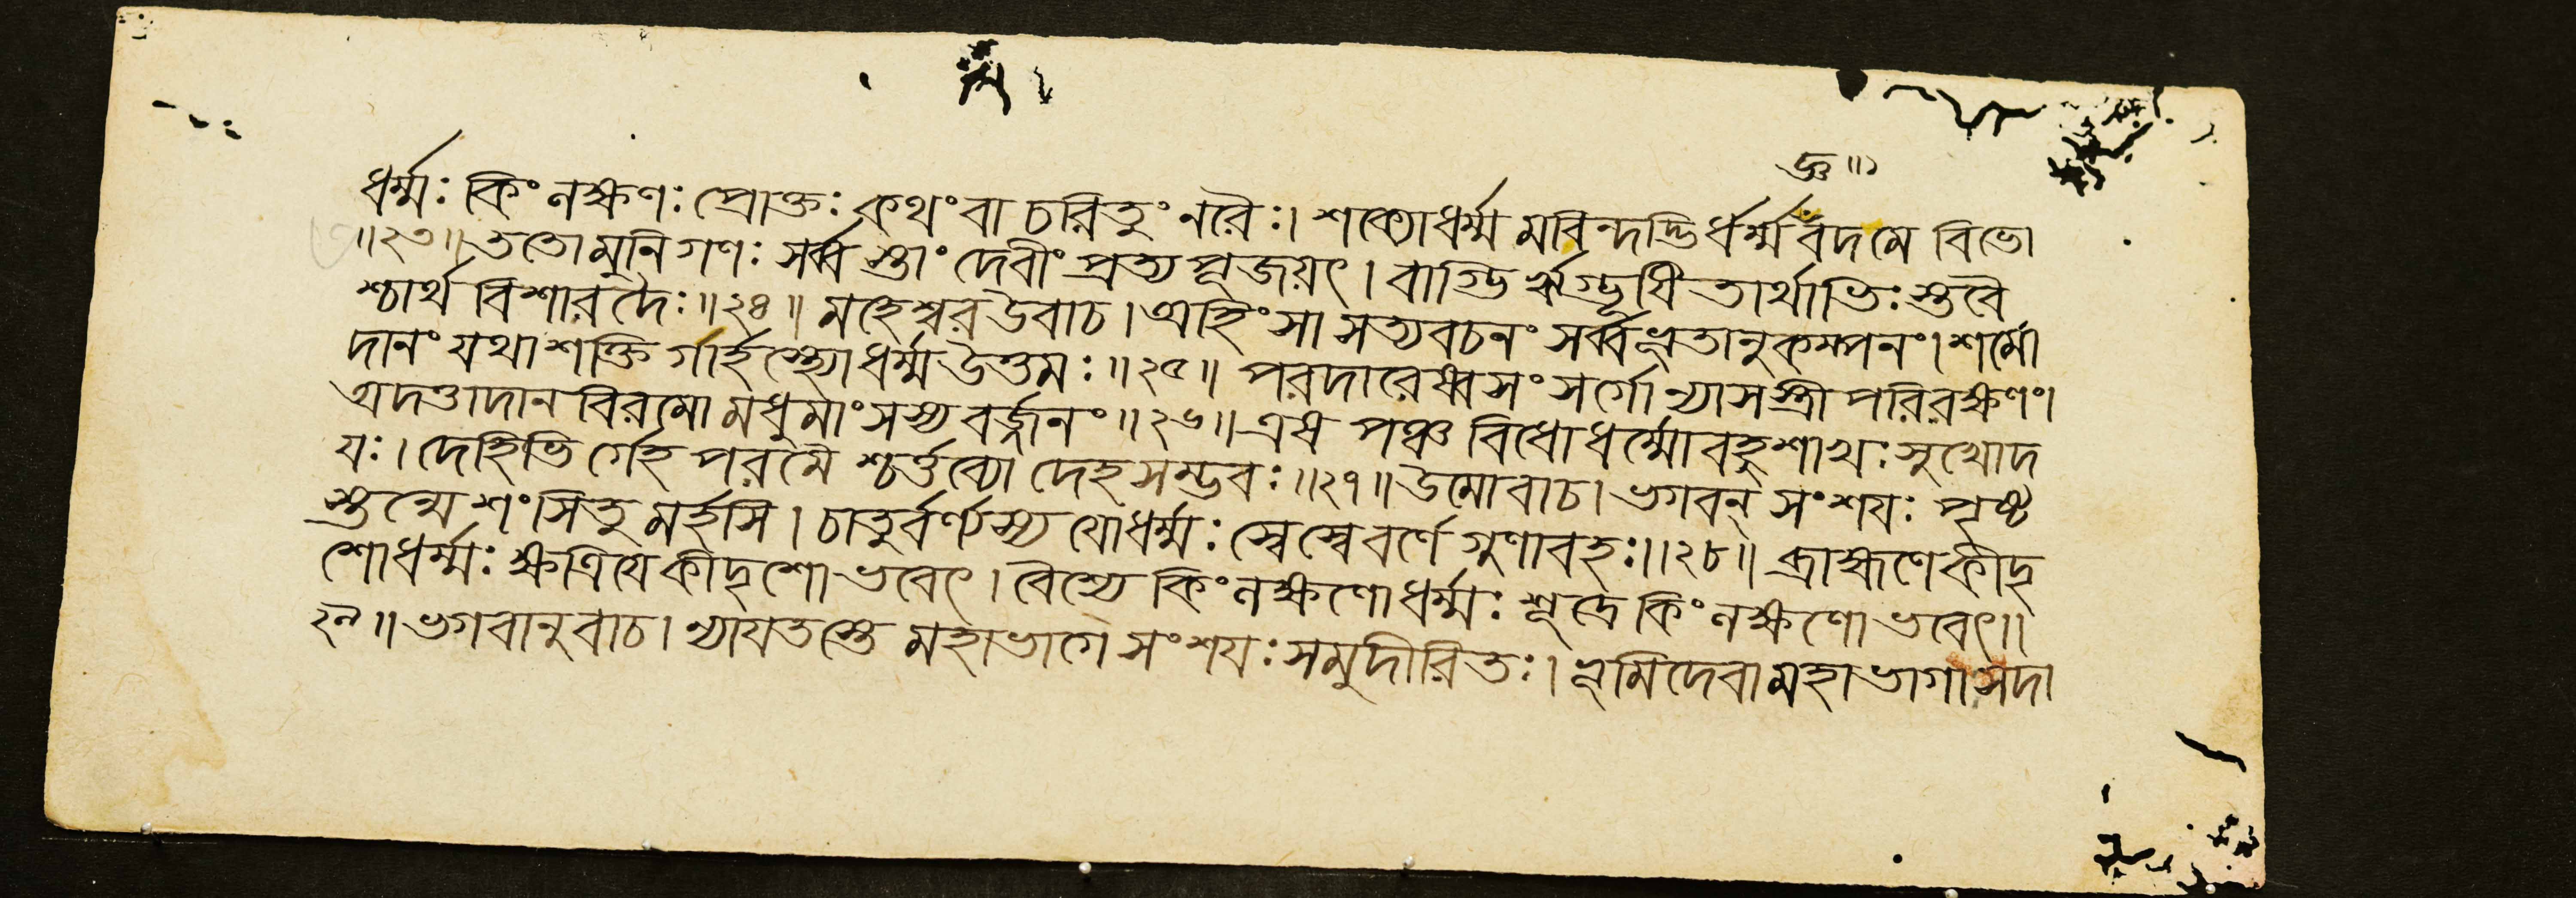 জ্ঞ ॥১
ধর্ম্মঃ কিং লক্ষণঃ প্রোক্তঃ কথং বা চরিতুং নরৈঃ। শক্যোধর্ম্ম মবিন্দদ্ভি র্ধর্ম্মং বদ মে বিভো
॥২৩॥ ততো মুনি গণঃ সর্ব্ব স্তাং দেবীং প্রত্য পূজয়ৎ। বাগ্ভি ঋগ্ভূষি তার্থাভিঃ স্তবৈ
শ্চার্থ বিশারদৈঃ॥২৪॥ মহেশ্বর উবাচ। অহিংসা সত্য বচনং সর্ব্বভূতানুকম্পনং। শমো
দানং যথা শক্তি র্গার্হস্থ্যো ধর্ম্ম উত্তমঃ॥২৫॥ পরদারেষ্বসংসর্গো ন্যাসস্ত্রী পরিরক্ষণং।
অদত্তাদান বিরমো মধুমাংসস্য বর্জ্জনং॥২৬॥ এষ পঞ্চ বিধো ধর্ম্মো বহুশাখঃ সুখোদ
য়ঃ। দেহিভি র্দেহ পরমৈ শ্চর্ত্তব্যো দেহ সম্ভবঃ॥২৭॥ উমোবাচ। ভগবন্ সংশয়ঃ পৃষ্ট
স্তন্মে শংসিতু মর্হসি। চাতুর্বর্ণ্যস্য যো ধর্ম্মঃ স্বে স্বে বর্ণে গুণাবহঃ॥২৮॥ ব্রাহ্মণে কীদৃ
শো ধর্ম্মঃ ক্ষত্রিয়ে কীদৃশো ভবেৎ। বৈশ্যে কিং লক্ষণো ধর্ম্মঃ শূদ্রে কিং লক্ষণো ভবেৎ॥
২৯॥ ভগবানুবাচ। ন্যায়তস্তে মহাভাগে সংশয়ঃ সমুদীরিতঃ। ভূমিদেবা মহাভাগাঃ সদা